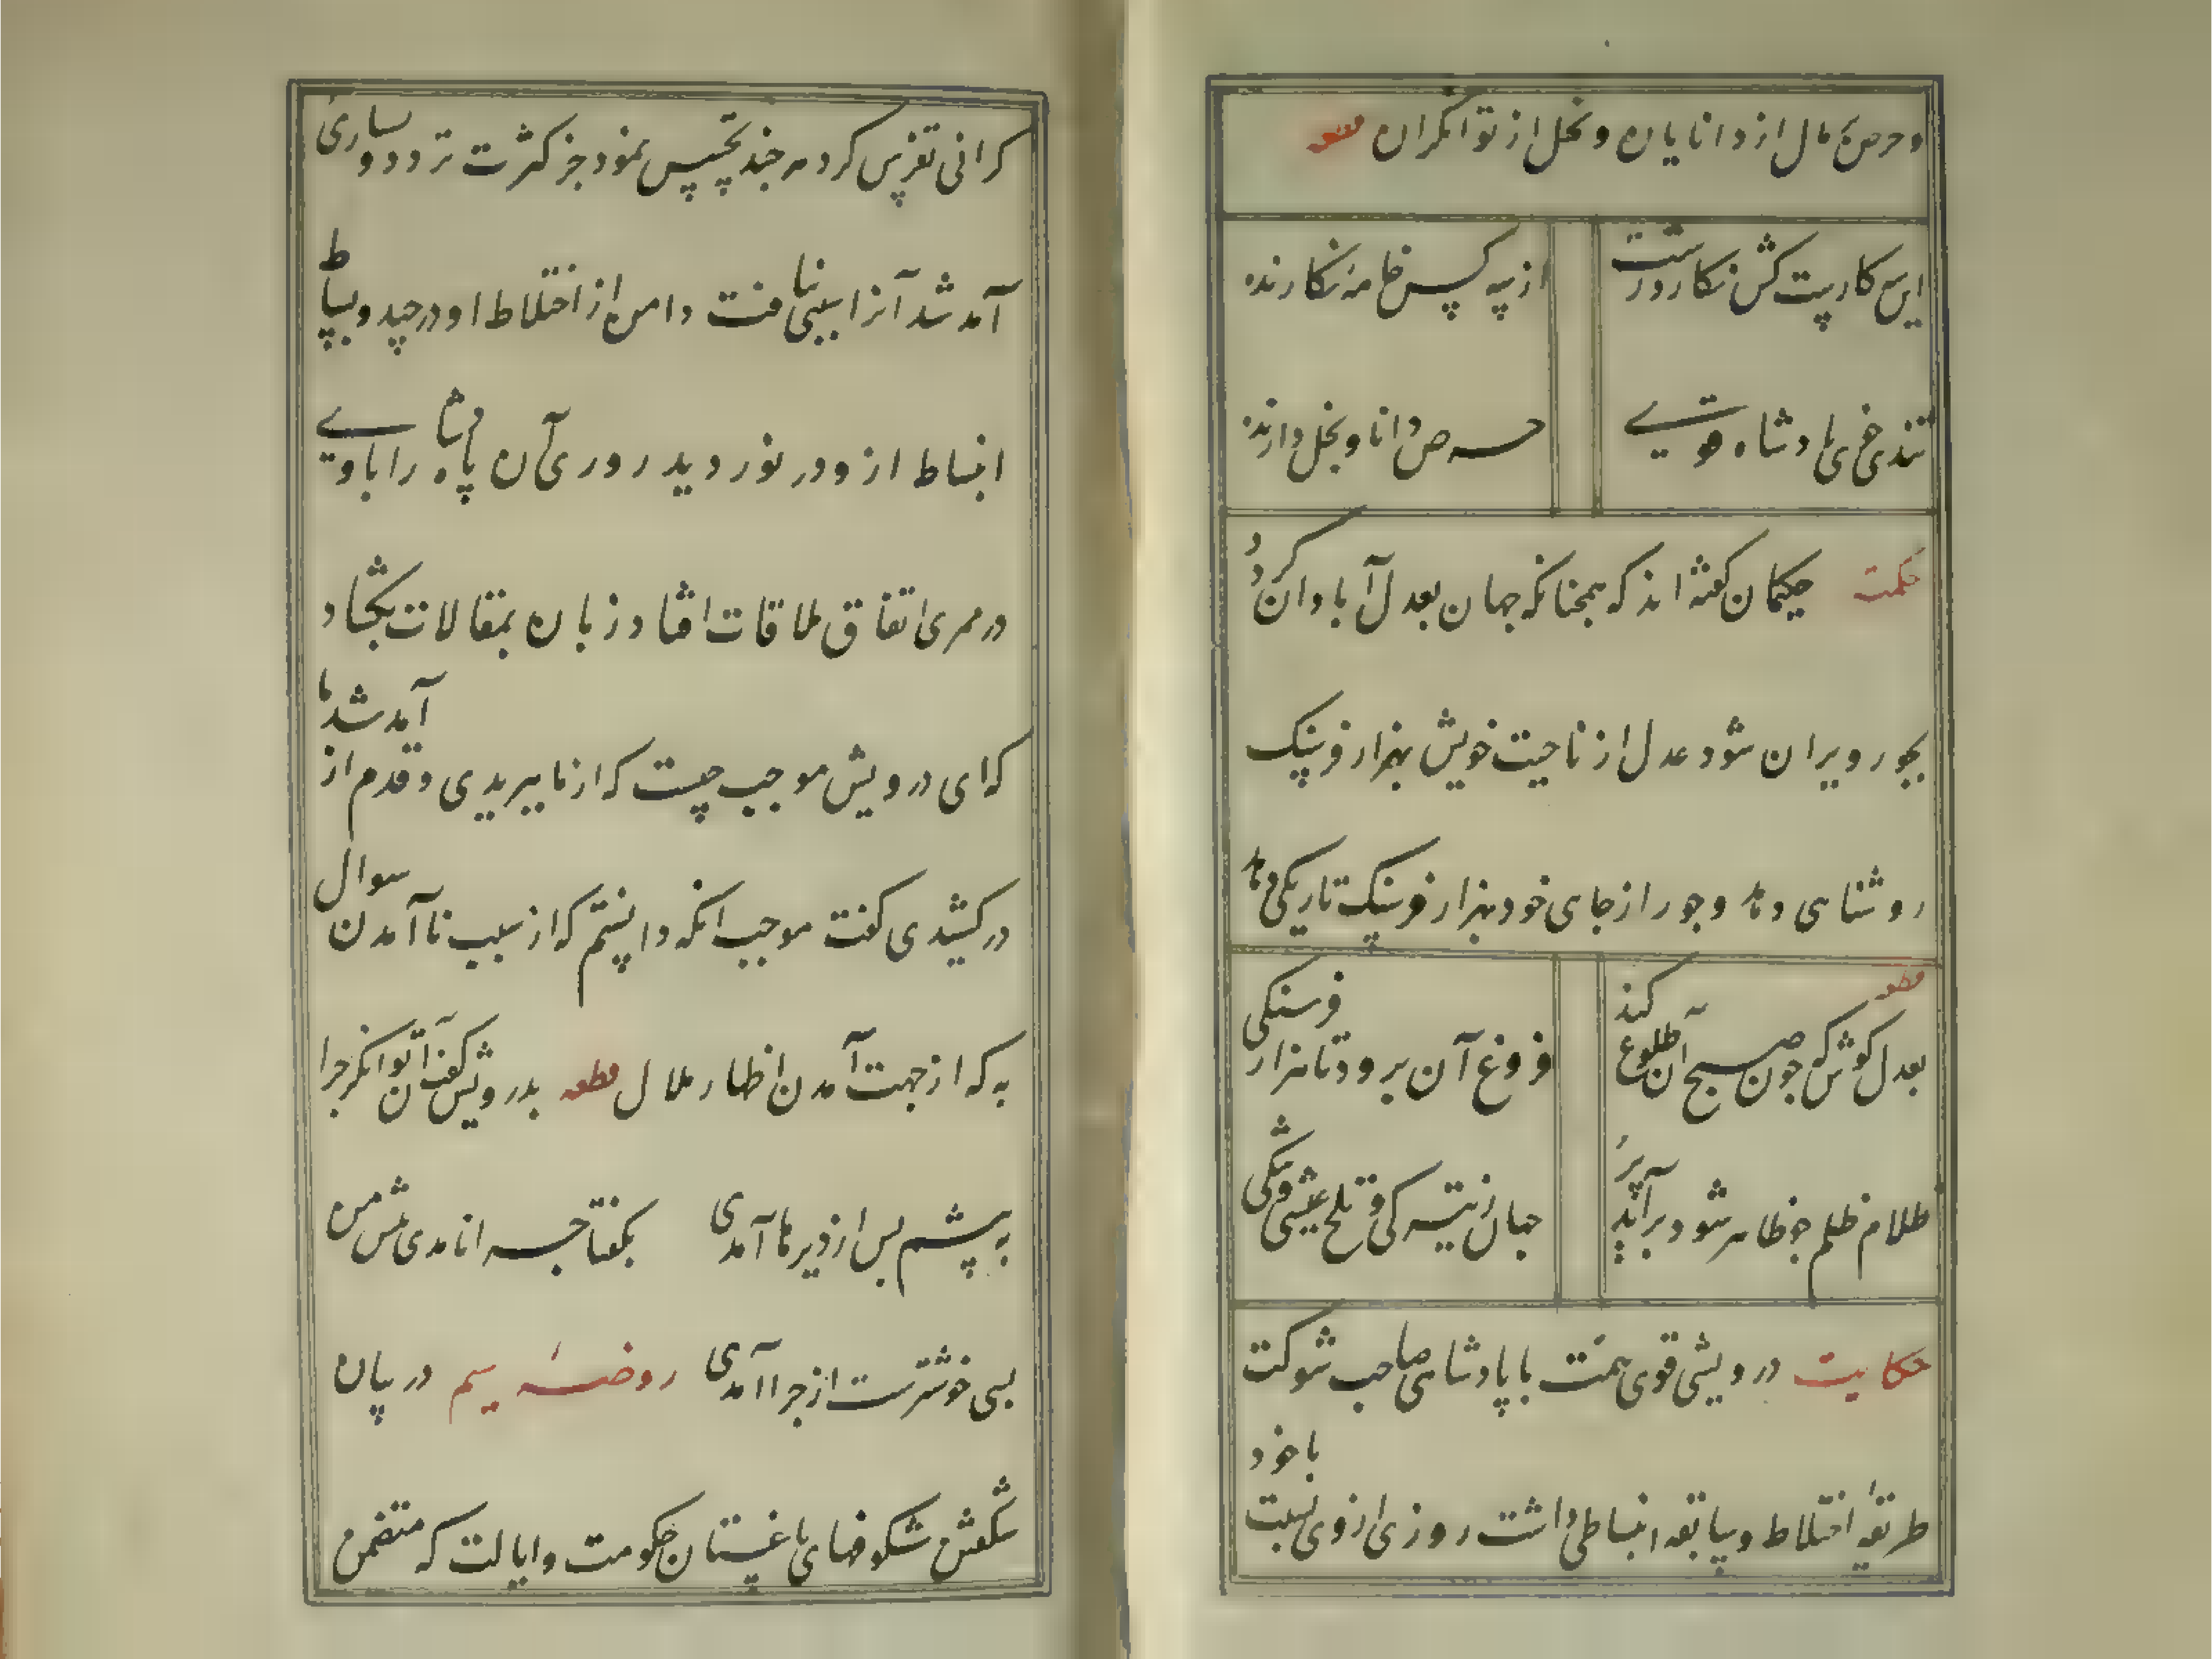 و حرص مال از دانایان و بخل از توانکران قطعه
این سه کاریست کش نکارد زشت
از پیه کس خامه نکارنده
تندخویی پادشاه قوی
حرص دانا و بخل دارنده
حکمت حکیمان کفته اند که همچنانکه جهان بعدل آبادان کردد
بجور ویران شود عدل از ناحیت خویش بهزار فرسنک
روشنایی دهد و جور از جای خود بهزار فرسنک تاریکی دهد
قطعه
بعدل کوش که چون صبح آن طلوع کند
فروغ آن برود تا هزار فرسنکی
ظلام ظلم چو ظاهر شود برآید پر
جهان ز تیرکی و تلخ عیشی و تنکی
حکایت درویشی قوی همت با پادشاهی صاحب شوکت
طریقه اختلاط و سابقه انبساطی داشت روزی از وی نسبت باخود
کرانی تفرس کرد هر چند تجسس نمود جز کثرت تردد و بسیاری
آمد شد آنرا سببی نیافت دامن از اختلاط او درچید و بساط
انبساط او درنوردید روزی آن پادشاه را با وی
در ممری اتفاق ملاقات افتاد زبان بمقالات بکشاد
که ای درویش موجب چیست که از ما ببریدی و قدم از آمدشد ما
درکشیدی کفت موجب آنکه دانستم که از سبب ناآمدن سوال
به که از جهت آمدن اظهار ملال قطعه بدرویش کفت آن توانکر چرا
به پیشم پس از دیرها آمدی بکفتا چرا نامدی پیش من
بسی خوشترست از چرا آمدی روضه سیم در بیان
شکفتن شکوفهای باغستان حکومت و ایالت که متضمن